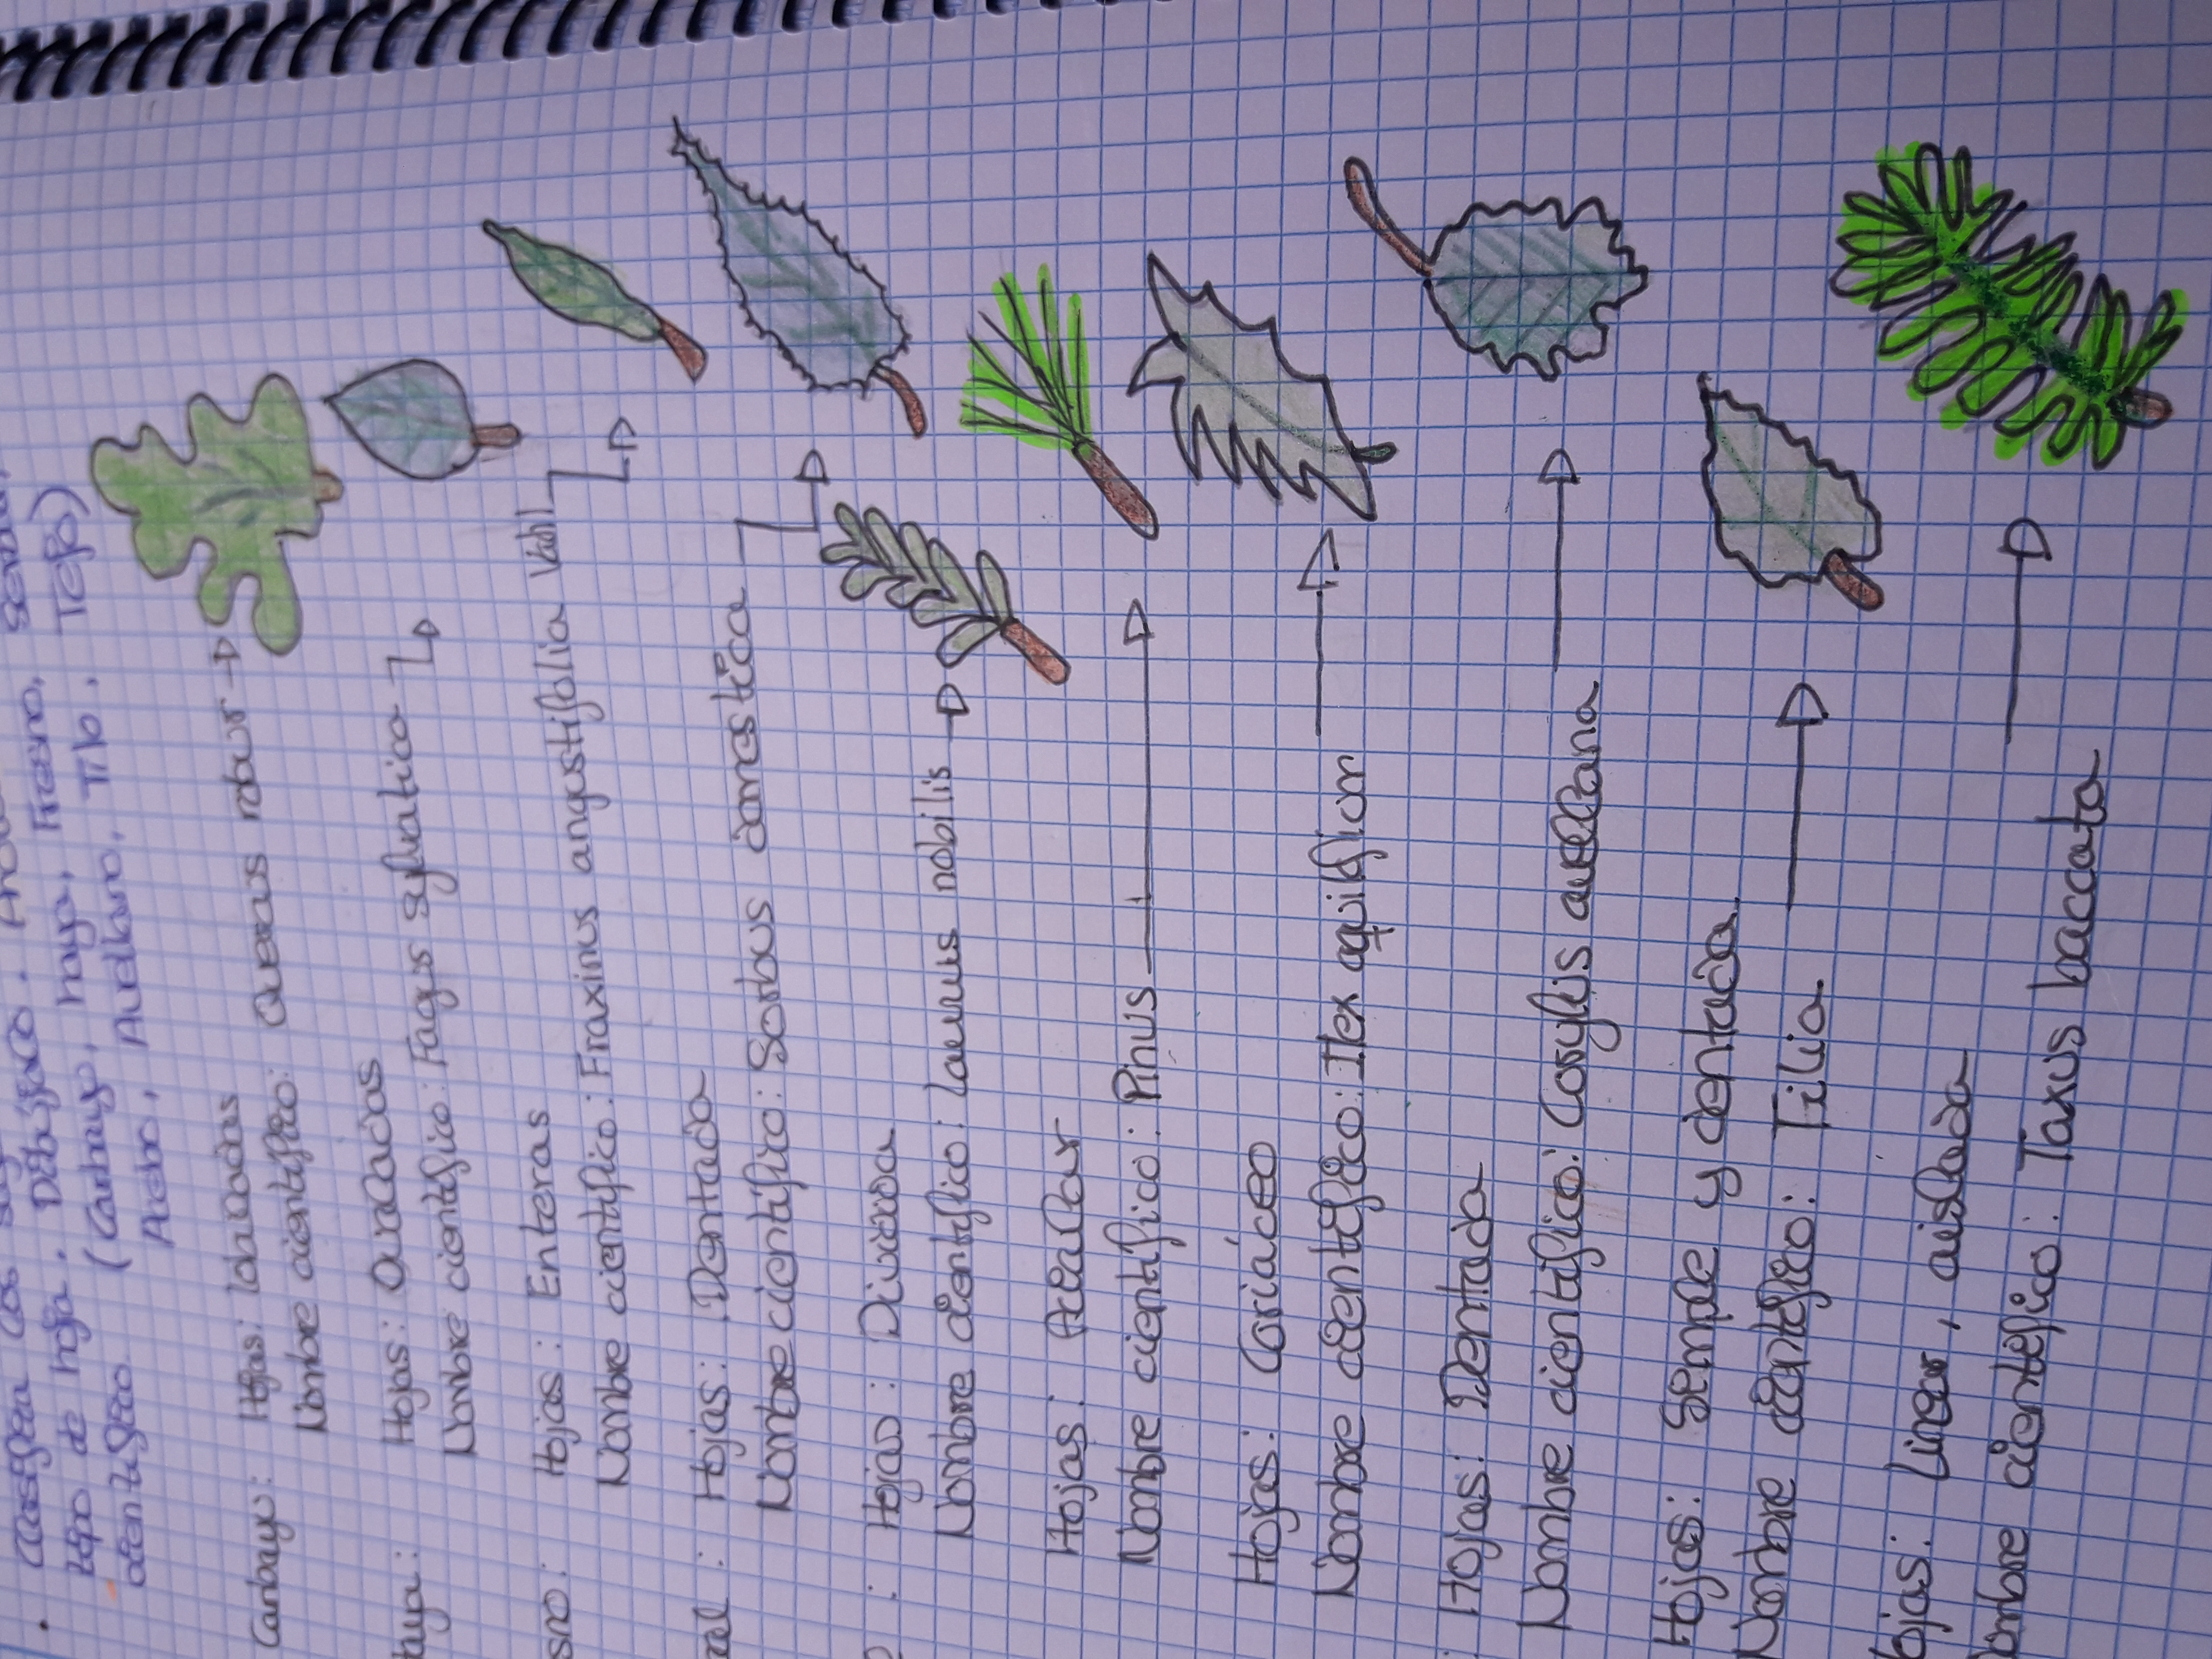 . Clasifica las . Dibújalo .
tipo de hoja . (Carbayo, haya, Fresno,
científico Acebo, Avellano, Tilo, Tejo)
Carbayo: Hojas: lobuladas
Nombre científico: Quercus robur
Haya: Hojas: Ovaladas
Nombre científico: Fagus sylvatica
sno: Hojas: Enteras
Nombre científico: Fraxinus angustifolia Vahl
Hojas: Dentada
Nombre científico: Sorbus domestica
: Hojas: Divididas
Nombre científico: Laurus nobilis
Hojas: Acicular
Nombre científico: Pinus
Hojas: Coriáceo
Nombre científico: Ilex aquifium
Hojas: Dentada
Nombre científico: Corylis avellana
Hojas: Simple y dentada
Nombre científico: Tilia
ojas: Linear, aislada
ombre científico: Taxus baccata